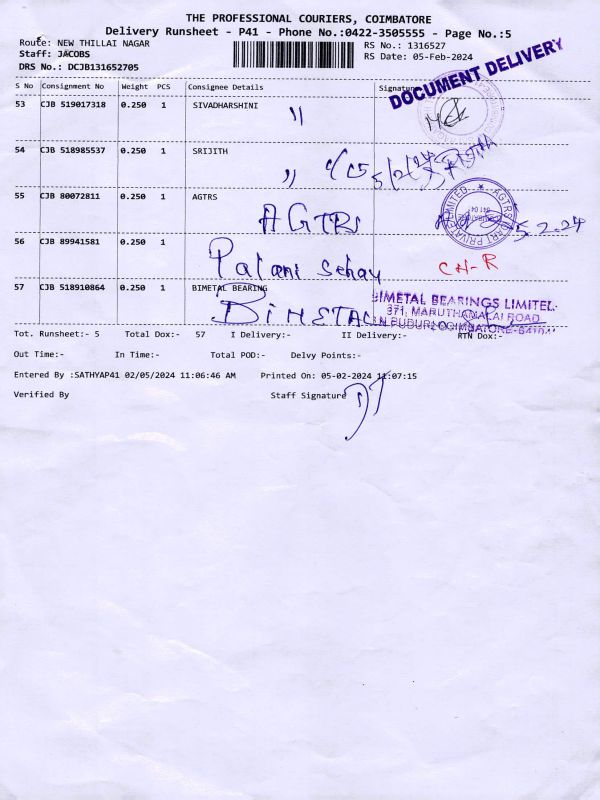 THE PROFESSIONAL COURIERS, COIMBATORE
Delivery Runsheet - P41 - Phone No.:0422-3505555 - Page No.:5
Route: NEW THILLAI NAGAR RS No.: 1316527
Staff: JACOBS RS Date: 05-Feb-2024
DRS No.: DCJB131652705
DOCUMENT DELIVERY
S No Consignment No Weight PCS Consignee Details Signature
53 CJB 519017318 0.250 1 SIVADHARSHINI
"
54 CJB 518985537 0.250 1 SRIJITH
"
55 CJB 80072811 0.250 1 AGTRS
AGTRS 5.2.24
56 CJB 89941581 0.250 1
Palani CH-R
57 CJB 518910864 0.250 1 BIMETAL BEARING
BIMETAL
BIMETAL BEARINGS LIMITED.
371, MARUTHAMALAI ROAD
Tot. Runsheet:- 5 Total Dox:- 57 I Delivery:- II Delivery:- RTN Dox:-
Out Time:- In Time:- Total POD:- Delvy Points:-
Entered By :SATHYAP41 02/05/2024 11:06:46 AM Printed On: 05-02-2024 11:07:15
Verified By Staff Signature